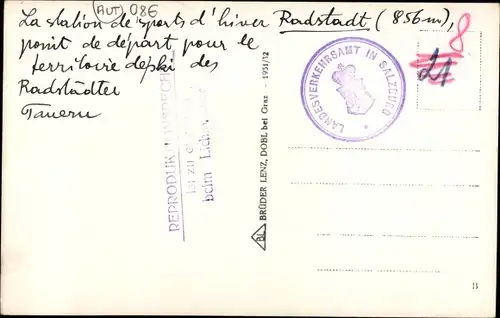 AUT 086
La station de sports d'hiver Radstadt (856m),
point de départ pour le
territoire de ski des
Radstädter
Tauern
REPRODUKTIONSRECHT
ist zu
beim Lichtbild
BL BRÜDER LENZ, DOBL bei Graz - 1951/12
LANDESVERKEHRSAMT IN SALZBURG
8
21
B